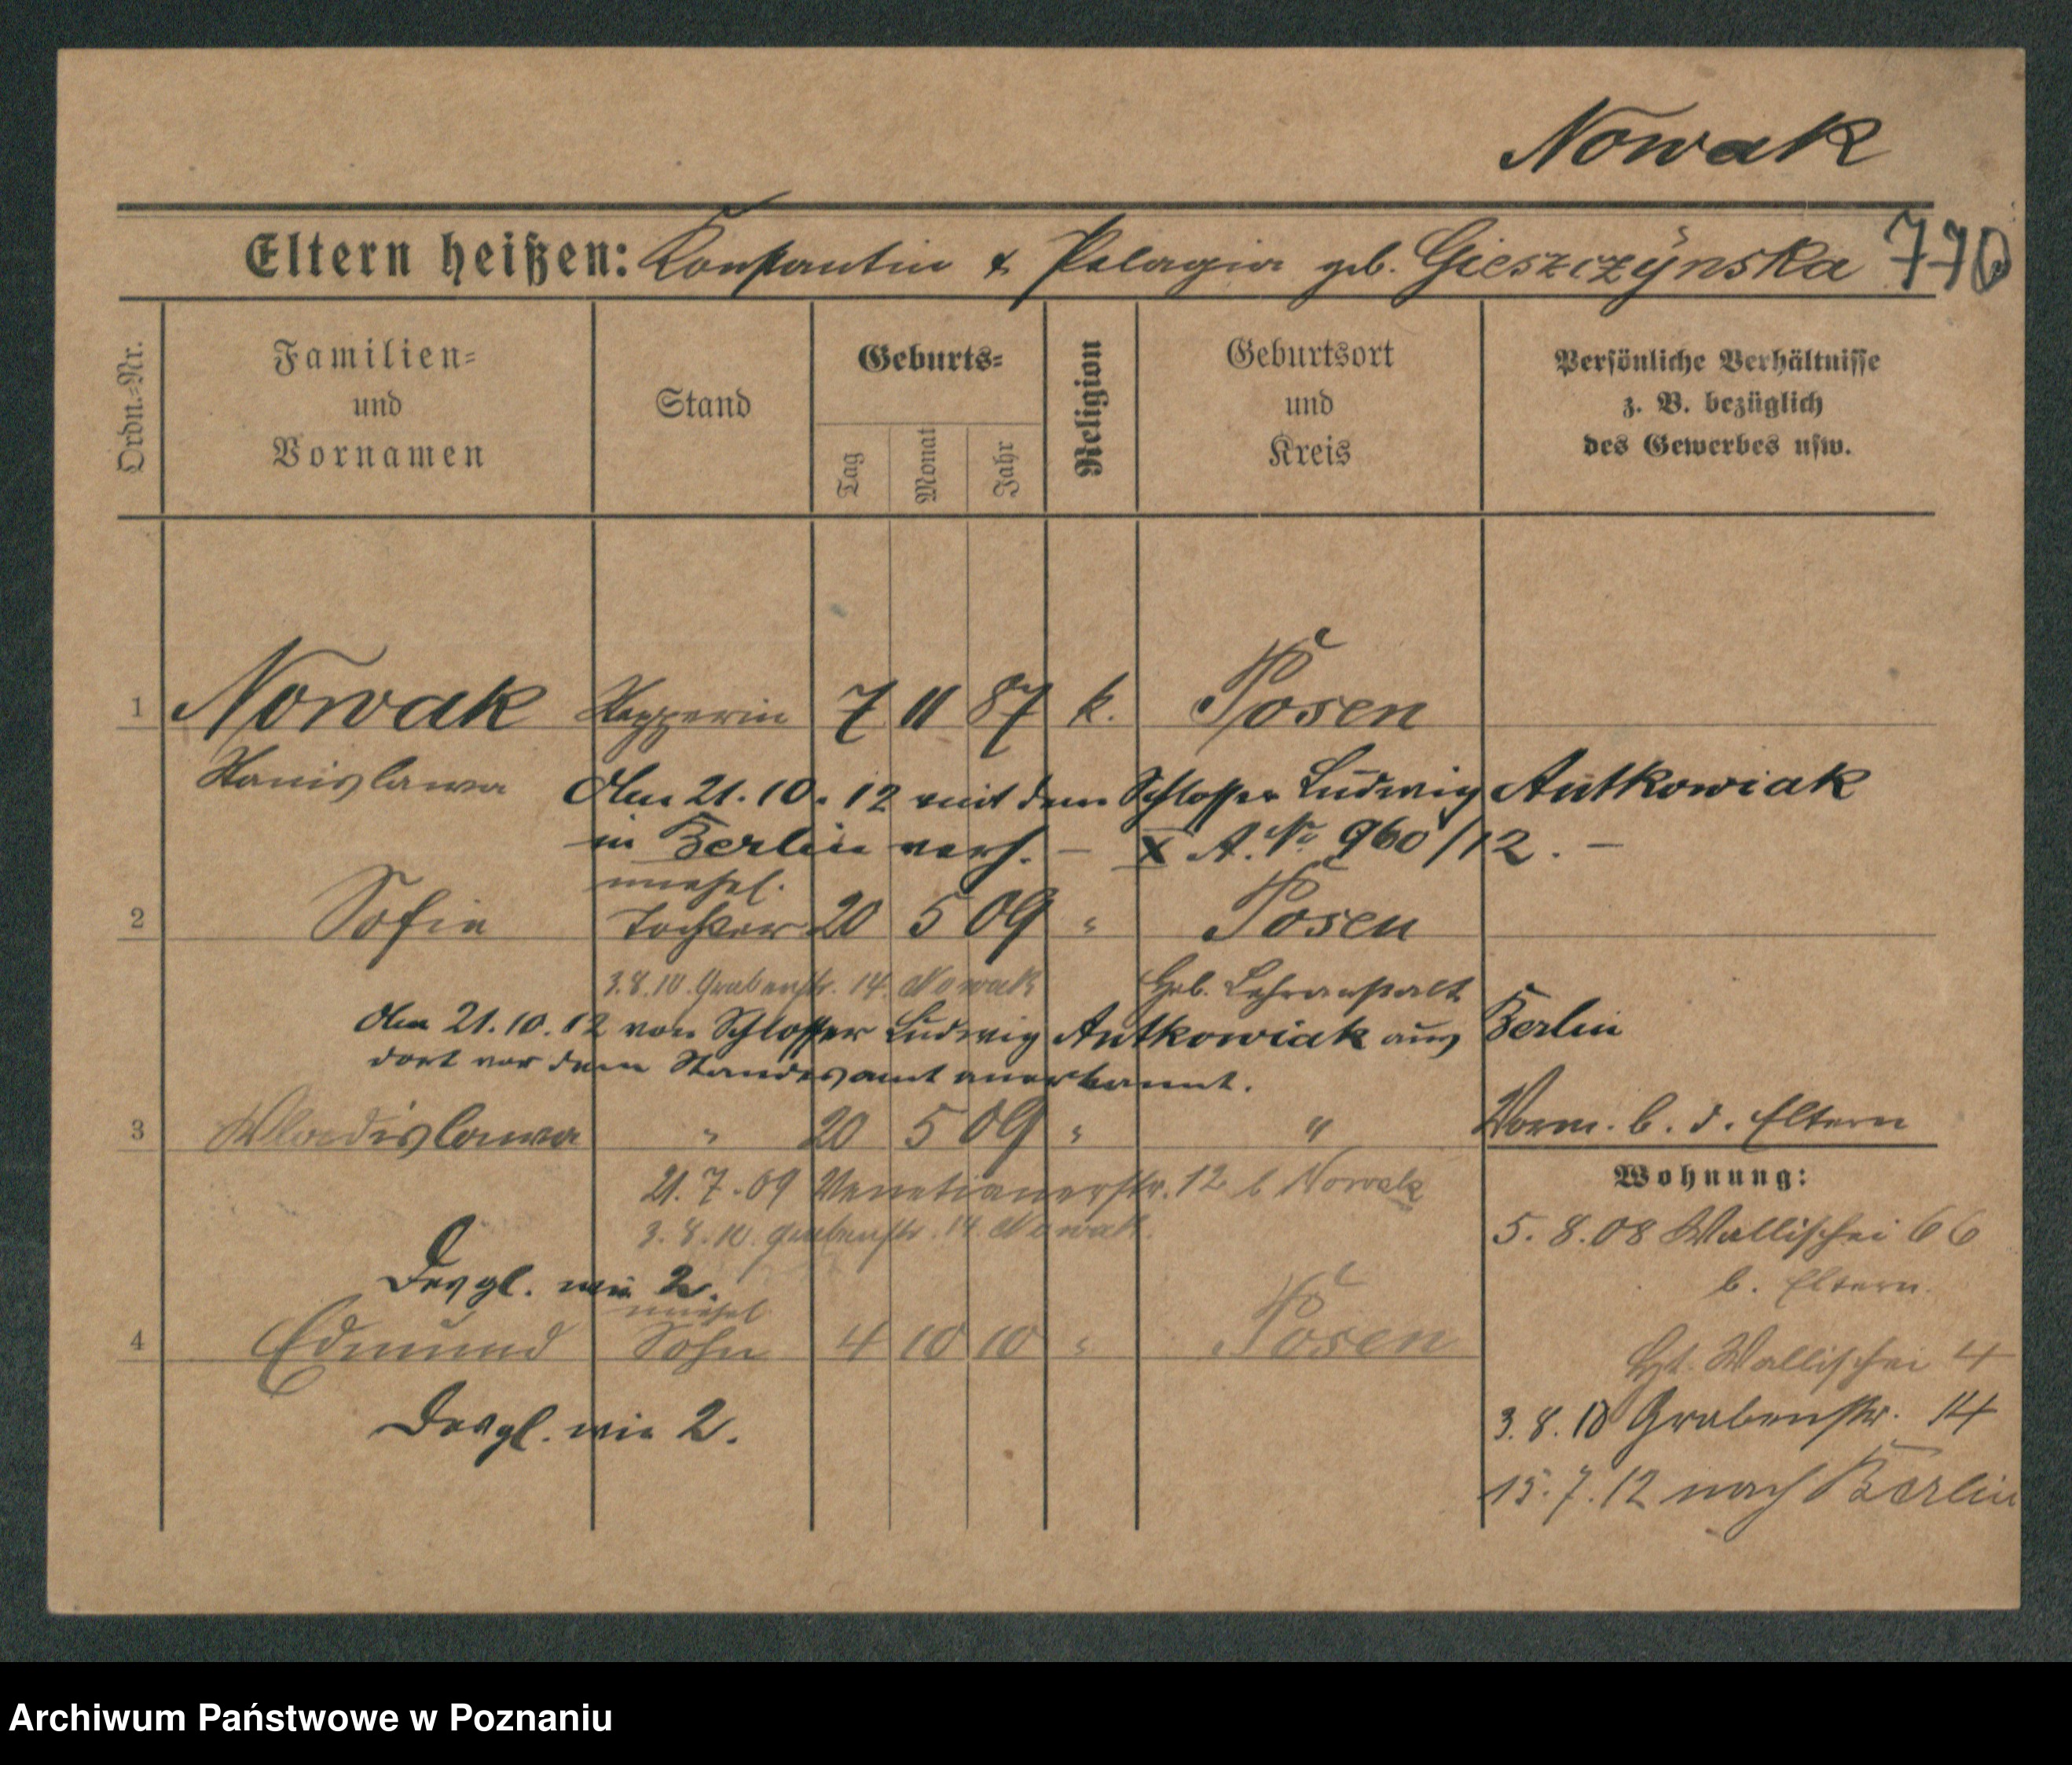 Nowak
Eltern heißen: Konstantin & Pelagia geb. Gieszczyńska 770
Ordn.=Nr.
Familien=
und
Vornamen
Stand
Geburts=
Tag
Monat
Jahr
Religion
Geburtsort
und
Kreis
Persönliche Verhältnisse
z. B. bezüglich
des Gewerbes usw.
1 Nowak 7 11 87 k. Posen
Stanislawa Am 21.10.12 mit dem Schlosser Ludwig Antkowiak
in Berlin verh. – X A. No 960/12. –
unehel.
2 Sofie Tochter 20 5 09 " Posen
3.8.10. Grabenstr. 14. Nowak Geb. Lehranstalt
Am 21.10.12 von Schlosser Ludwig Antkowiak aus Berlin
dort vor dem Standesamt anerkannt.
3 Wladislawa " 20 5 09 " " Vorm. b. d. Eltern
21.7.09 Venetianerstr. 12 b Nowak
3.8.10. Grabenstr. 14. Nowak.
Desgl. wie 2.
unehel
4 Edmund Sohn 4 10 10 " Posen
Desgl. wie 2.
Wohnung:
5.8.08 Wallischei 66
b. Eltern.
Wallischei 4
3.8.10 Grabenstr. 14
15.7.12 nach Berlin
Archiwum Państwowe w Poznaniu